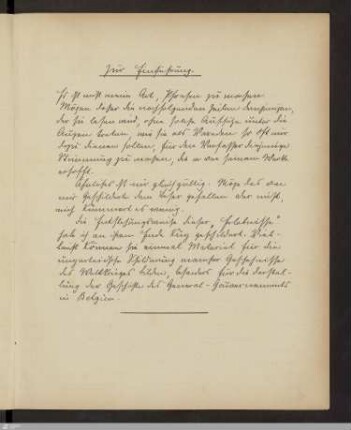 Zur Einführung.
Es ist nicht meine Art, Phrasen zu machen
Mögen daher die nachfolgenden Zeilen demjenigen,
der sie lesen wird, ohne solche Aufsätze unter die
Augen treten, wie sie als Vorreden so oft nur
dazu dienen sollen, für den Verfasser diejenige
Stimmung zu machen, die er von seinem Werk
erhofft.
Ähnliches ist mir gleichgültig. Möge das von
mir Geschilderte dem Leser gefallen oder nicht,
mich kümmert es wenig.
Die Entstehungsweise dieser „Erlebnisse"
hab ich an ihrem Ende kurz geschildert. Viel-
leicht können sie einmal Material für die
unparteiische Schilderung mancher Geschehnisse
des Weltkrieges bilden, besonders für die Darstel-
lung der Geschichte des General-Gouvernements
in Belgien.